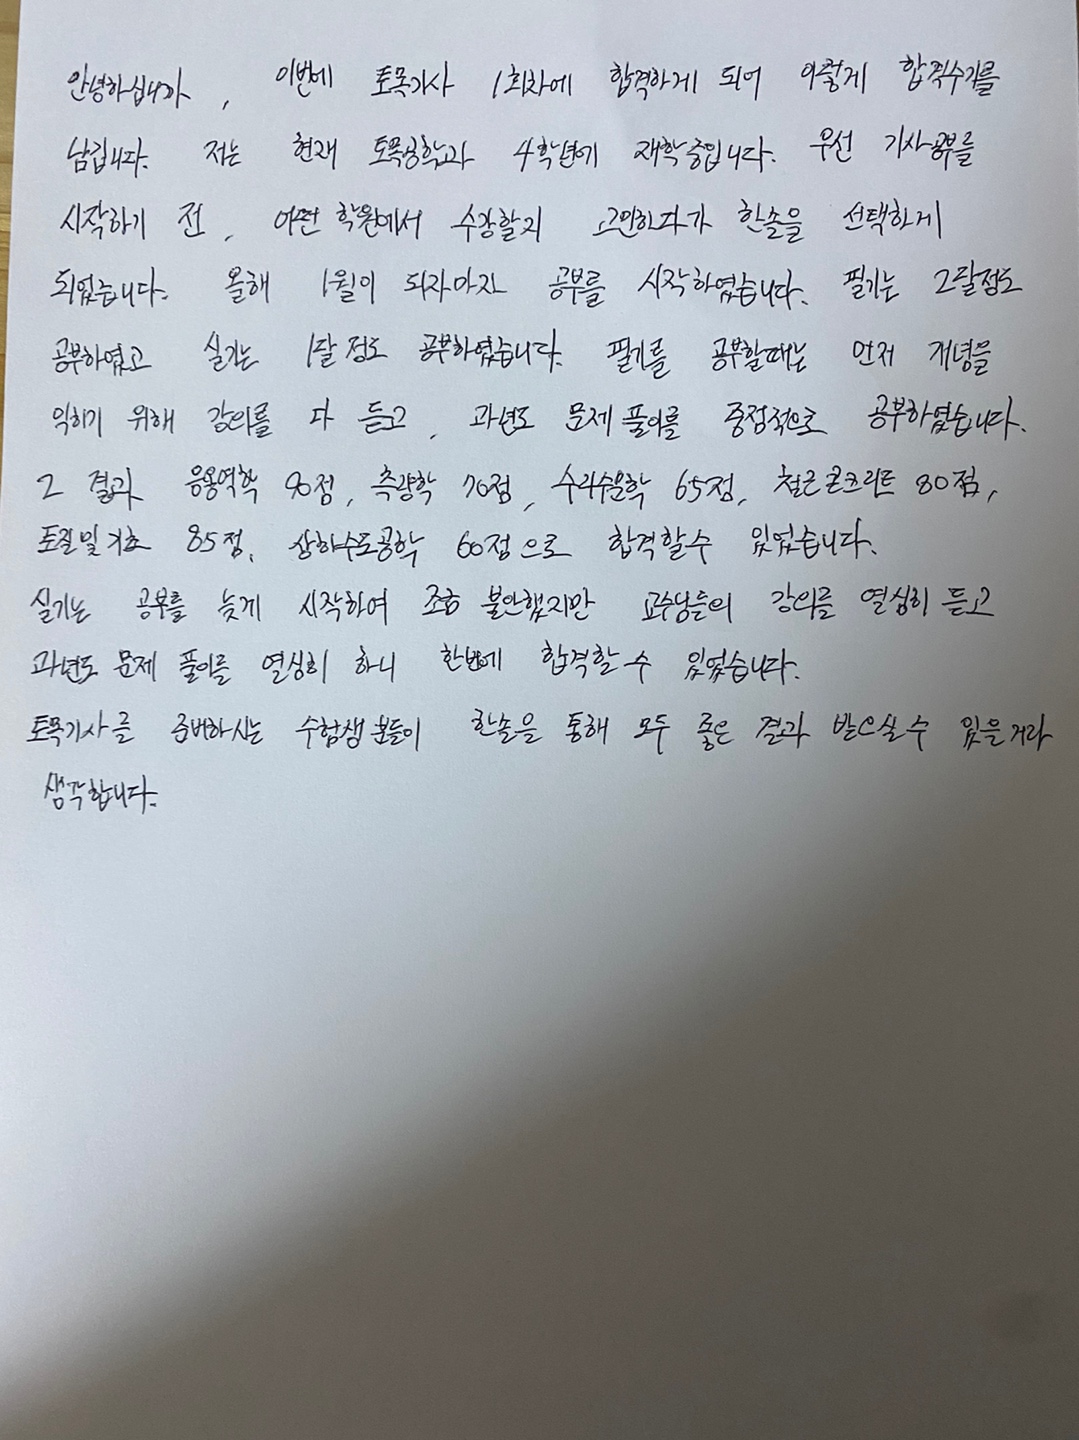 안녕하십니까, 이번에 토목기사 1회차에 합격하게 되어 이렇게 합격수기를
남깁니다. 저는 현재 토목공학과 4학년에 재학중입니다. 우선 기사공부를
시작하기 전, 어떤 학원에서 수강할지 고민하다가 한솔을 선택하게
되었습니다. 올해 1월이 되자마자 공부를 시작하였습니다. 필기는 2달정도
공부하였고 실기는 1달 정도 공부하였습니다. 필기를 공부할때는 먼저 개념을
익히기 위해 강의를 다 듣고, 과년도 문제 풀이를 중점적으로 공부하였습니다.
그 결과 응용역학 90점, 측량학 70점, 수리수문학 65점, 철근콘크리트 80점,
토질및기초 85점, 상하수도공학 60점으로 합격할수 있었습니다.
실기는 공부를 늦게 시작하여 조금 불안했지만 교수님들의 강의를 열심히 듣고
과년도 문제 풀이를 열심히 하니 한번에 합격할 수 있었습니다.
토목기사를 준비하시는 수험생분들이 한솔을 통해 모두 좋은 결과 받으실수 있을거라
생각합니다.